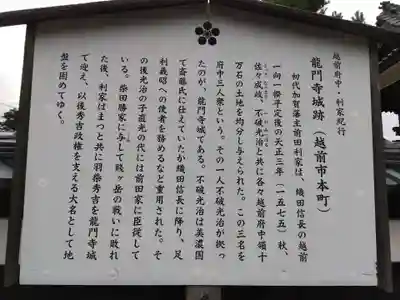 越前府中・利家紀行
龍門寺城跡(越前市本町)
初代加賀藩主前田利家は、織田信長の越前
一向一揆平定後の天正三年(一五七五)秋、
佐々成政、不破光治と共に各々越前府中領十
万石の土地を均分し与えられた。この三名を
府中三人衆という。その一人不破光治が拠っ
たのが、龍門寺城である。不破光治は美濃国
にて斎藤氏に仕えていたが織田信長に降り、足
利義昭への使者を務めるなど重用された。そ
の後光治の子直光の代には前田家に臣従して
いる。柴田勝家に与して賤ヶ岳の戦いに敗れ
た後、利家はまつと共に羽柴秀吉を龍門寺城
で迎え、以後秀吉政権を支える大名として地
盤を固めてゆく。